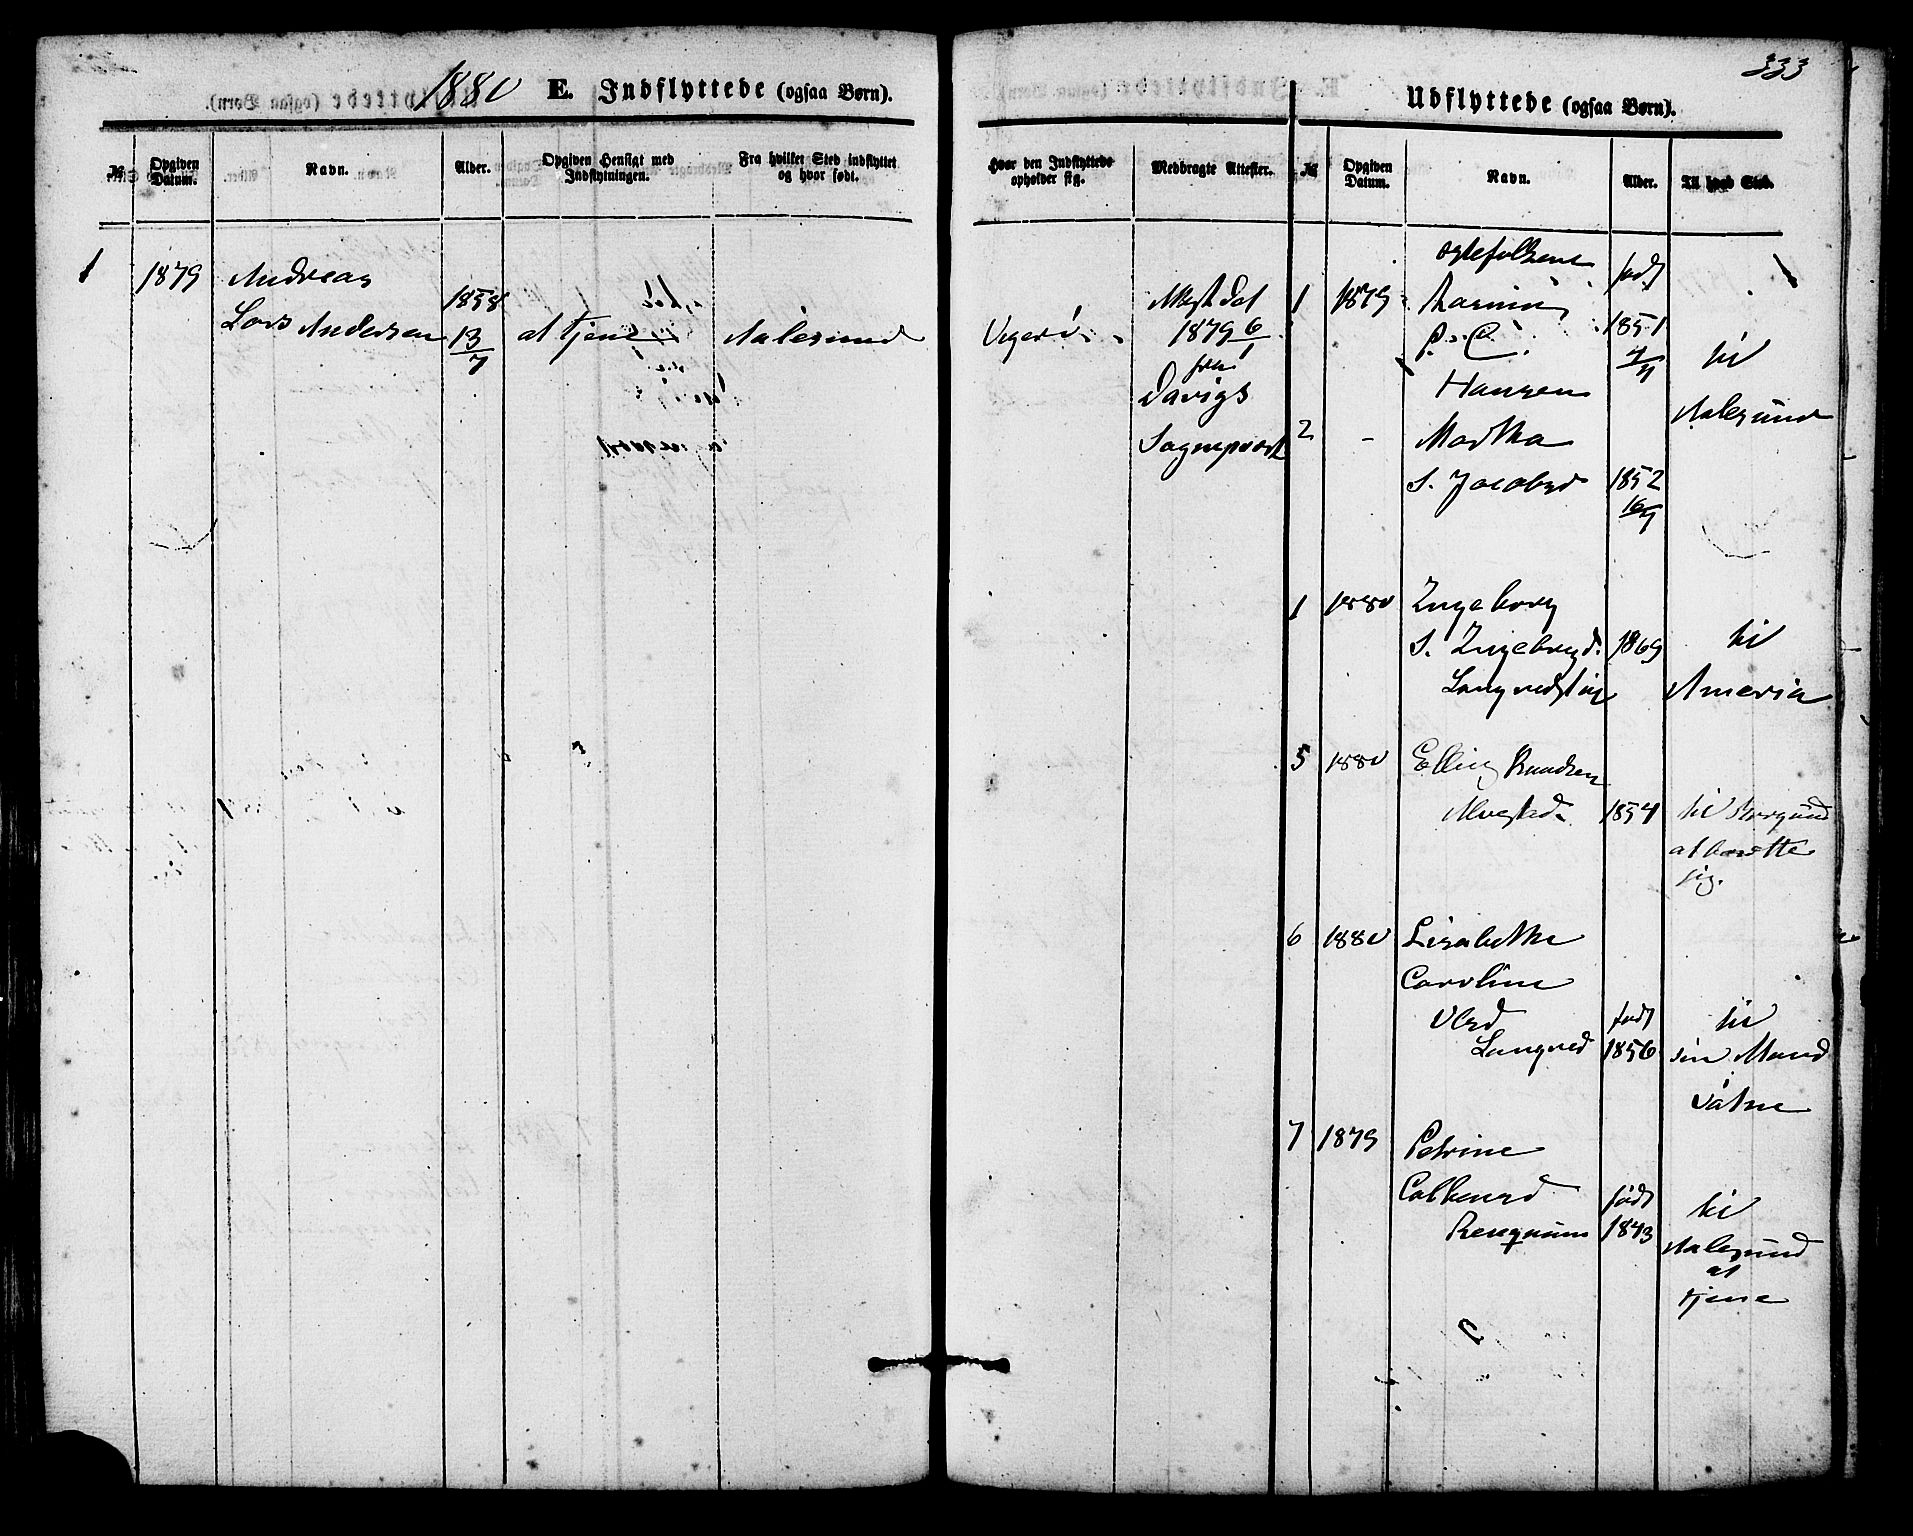 333
1880 E. Indflyttede (ogsaa Børn).
No
Opgiven Datum.
Navn.
Alder.
Opgiven Hensigt med Indflytningen.
Fra hvilket Sted indflyttet og hvor født.
Hvor den Indflyttede opholder sig.
Medbragte Attester.
1 1879 Andreas
Lars Andersen
1858
13/7
at tjene
Aalesund
Vigerö
Attest dat
1879 6/
fra
Davigs
Sognepræst
Udflyttede (ogsaa Børn).
No
Opgiven Datum.
Navn.
Alder.
Til hvad Sted.
Ægtefolkene født
1 1879 Rasmus
P. C. 1851
Hansen til
Aalesund
2 - Martha
S. Jacobsd 1852
1 1880 Ingeborg
S. Ingebrigd. 1869 til
Langvedstøy Ameria
5 1880 Elling Knudsen
Alvestad 1854 til Borgund
at bosætte
sig.
6 1880 Lisabethe
Caroline
Olsd født til
Langved 1856 sin Mand
7 1879 Petrine
født til
1843 Aalesund
at
tjene